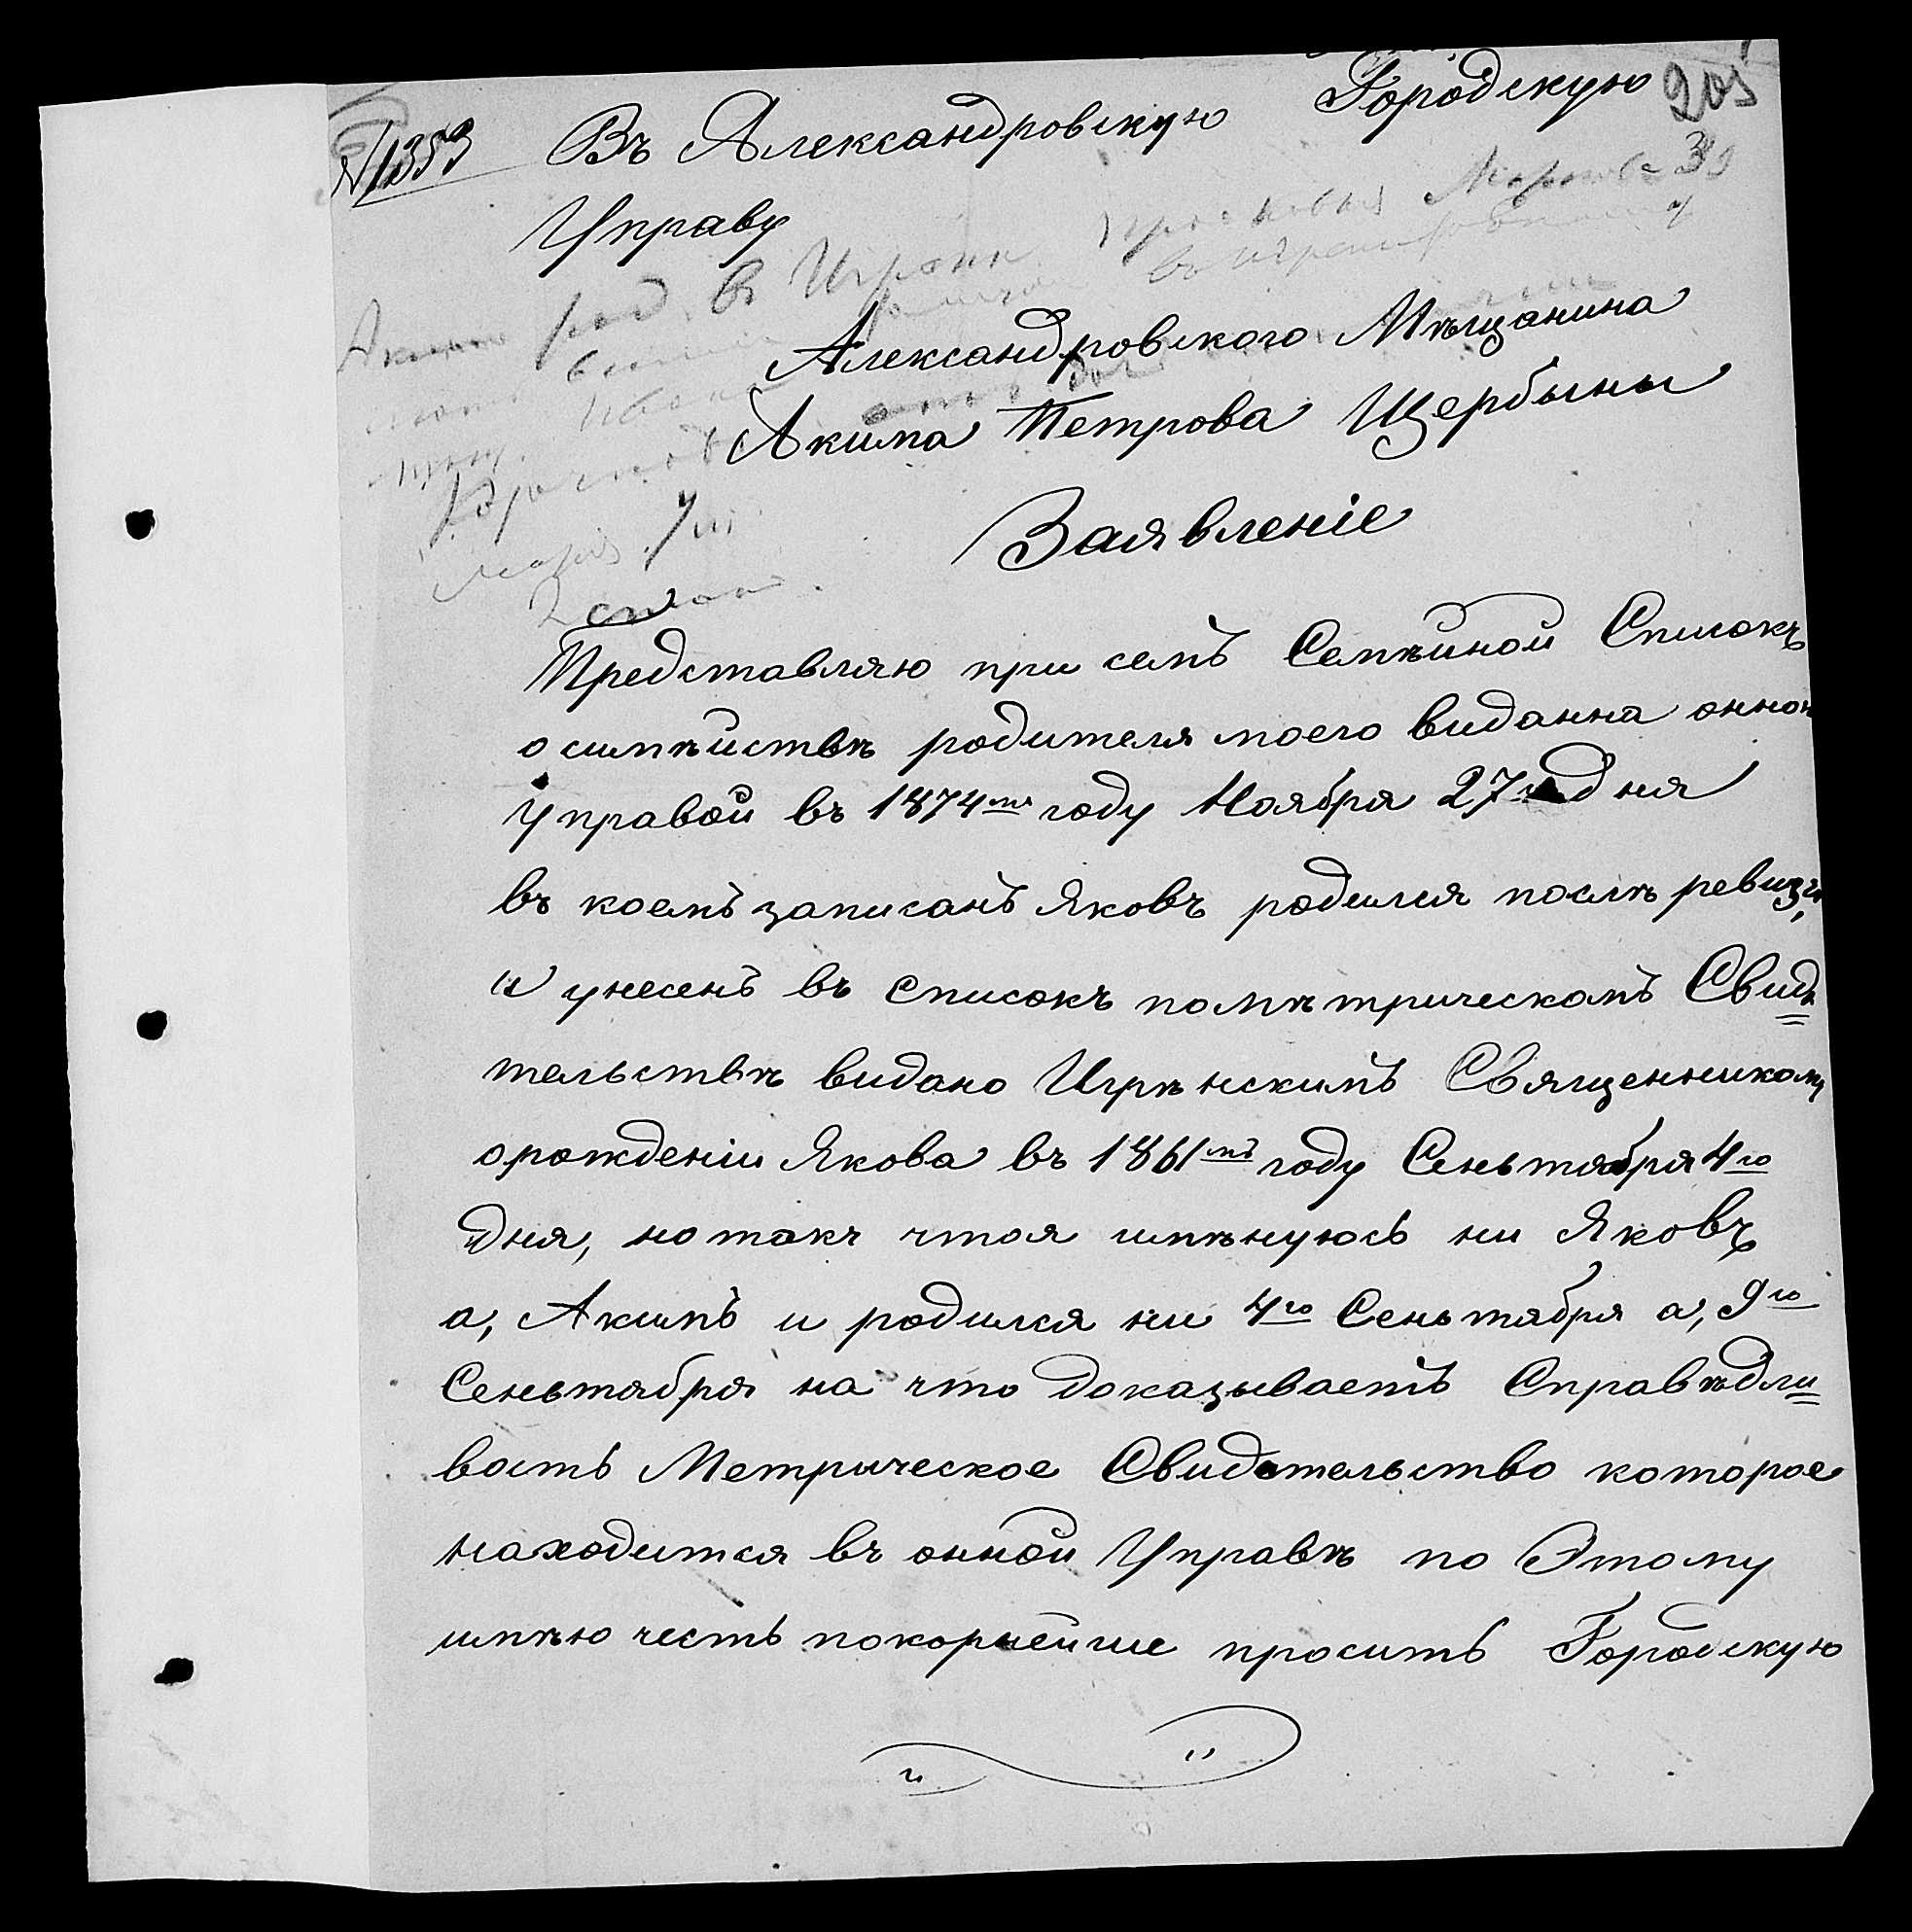 205
№1353 Въ Александровскую Городскую
Управу
Александровского Мѣщанина
Акима Петрова Щербины
Заявленіе
Представляю при семъ Семѣйной Списокъ
о симѣйствѣ родителя моего виданна онной
Управой въ 1874мъ году Ноября 27 дня
въ коемъ записанъ Яковъ родился послѣ ревизіи
и унесенъ въ списокъ помѣтрическомъ Свидѣ
тельствѣ видано Игрѣнскимъ Священникомъ
орождении Якова въ 1861мъ году Сеньтября 4го
дня, но такъ чтоя имѣнуюсь ни Яковъ
а, Акимъ и родился ни 4го Сеньтября а, 9го
Сеньтября на что доказываетъ Справѣдли
вость Метрическое Свидетельство которое
находится въ онной Управѣ по Этому
имѣю честь покорнейше просить Городскую